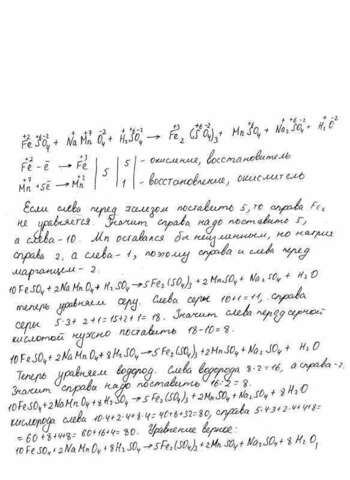 +2 +6 -2 + +7 -2 + +6 -2 +3 +6 -2 +2 +6 -2 + +6 -2 + -2
FeSO4 + NaMnO4 + H2SO4 → Fe2(SO4)3 + MnSO4 + Na2SO4 + H2O
Fe+2 - ē → Fe+3 | 5 | 5 - окисление, восстановитель
Mn+7 + 5ē → Mn+2 | | 1 - восстановление, окислитель
Если слева перед железом поставить 5, то справа Fe2
не уравняется. Значит справа надо поставить 5,
а слева - 10. Mn оставался бы неизменным, но натрия
справа 2, а слева - 1, поэтому справа и слева перед
марганцем - 2.
10FeSO4 + 2NaMnO4 + H2SO4 → 5Fe2(SO4)3 + 2MnSO4 + Na2SO4 + H2O
теперь уравняем серу. Слева серы 10+1=11, справа
серы 5·3+2+1=15+2+1=18. Значит слева перед серной
кислотой нужно поставить 18-10=8.
10FeSO4 + 2NaMnO4 + 8H2SO4 → 5Fe2(SO4)3 + 2MnSO4 + Na2SO4 + H2O
Теперь уравняем водород. Слева водорода 8·2=16, а справа - 2.
Значит справа надо поставить 16:2=8.
10FeSO4 + 2NaMnO4 + 8H2SO4 → 5Fe2(SO4)3 + 2MnSO4 + Na2SO4 + 8H2O
кислорода слева 10·4+2·4+8·4=40+8+32=80, справа 5·4·3+2·4+4+8=
=60+8+4+8=60+16+4=80. Уравнение верное:
10FeSO4 + 2NaMnO4 + 8H2SO4 → 5Fe2(SO4)3 + 2MnSO4 + Na2SO4 + 8H2O